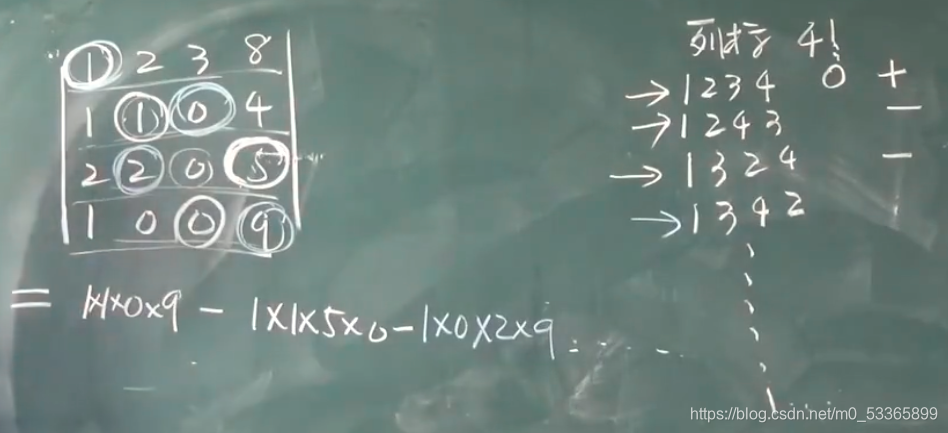 1 2 3 8
1 1 0 4
2 2 0 5
1 0 0 9
= 1×1×0×9 - 1×1×5×0-1×0×2×9 ······
列标 4!
→ 1 2 3 4 0 +
→ 1 2 4 3 -
→ 1 3 2 4 -
→ 1 3 4 2
https://blog.csdn.net/m0_53365899